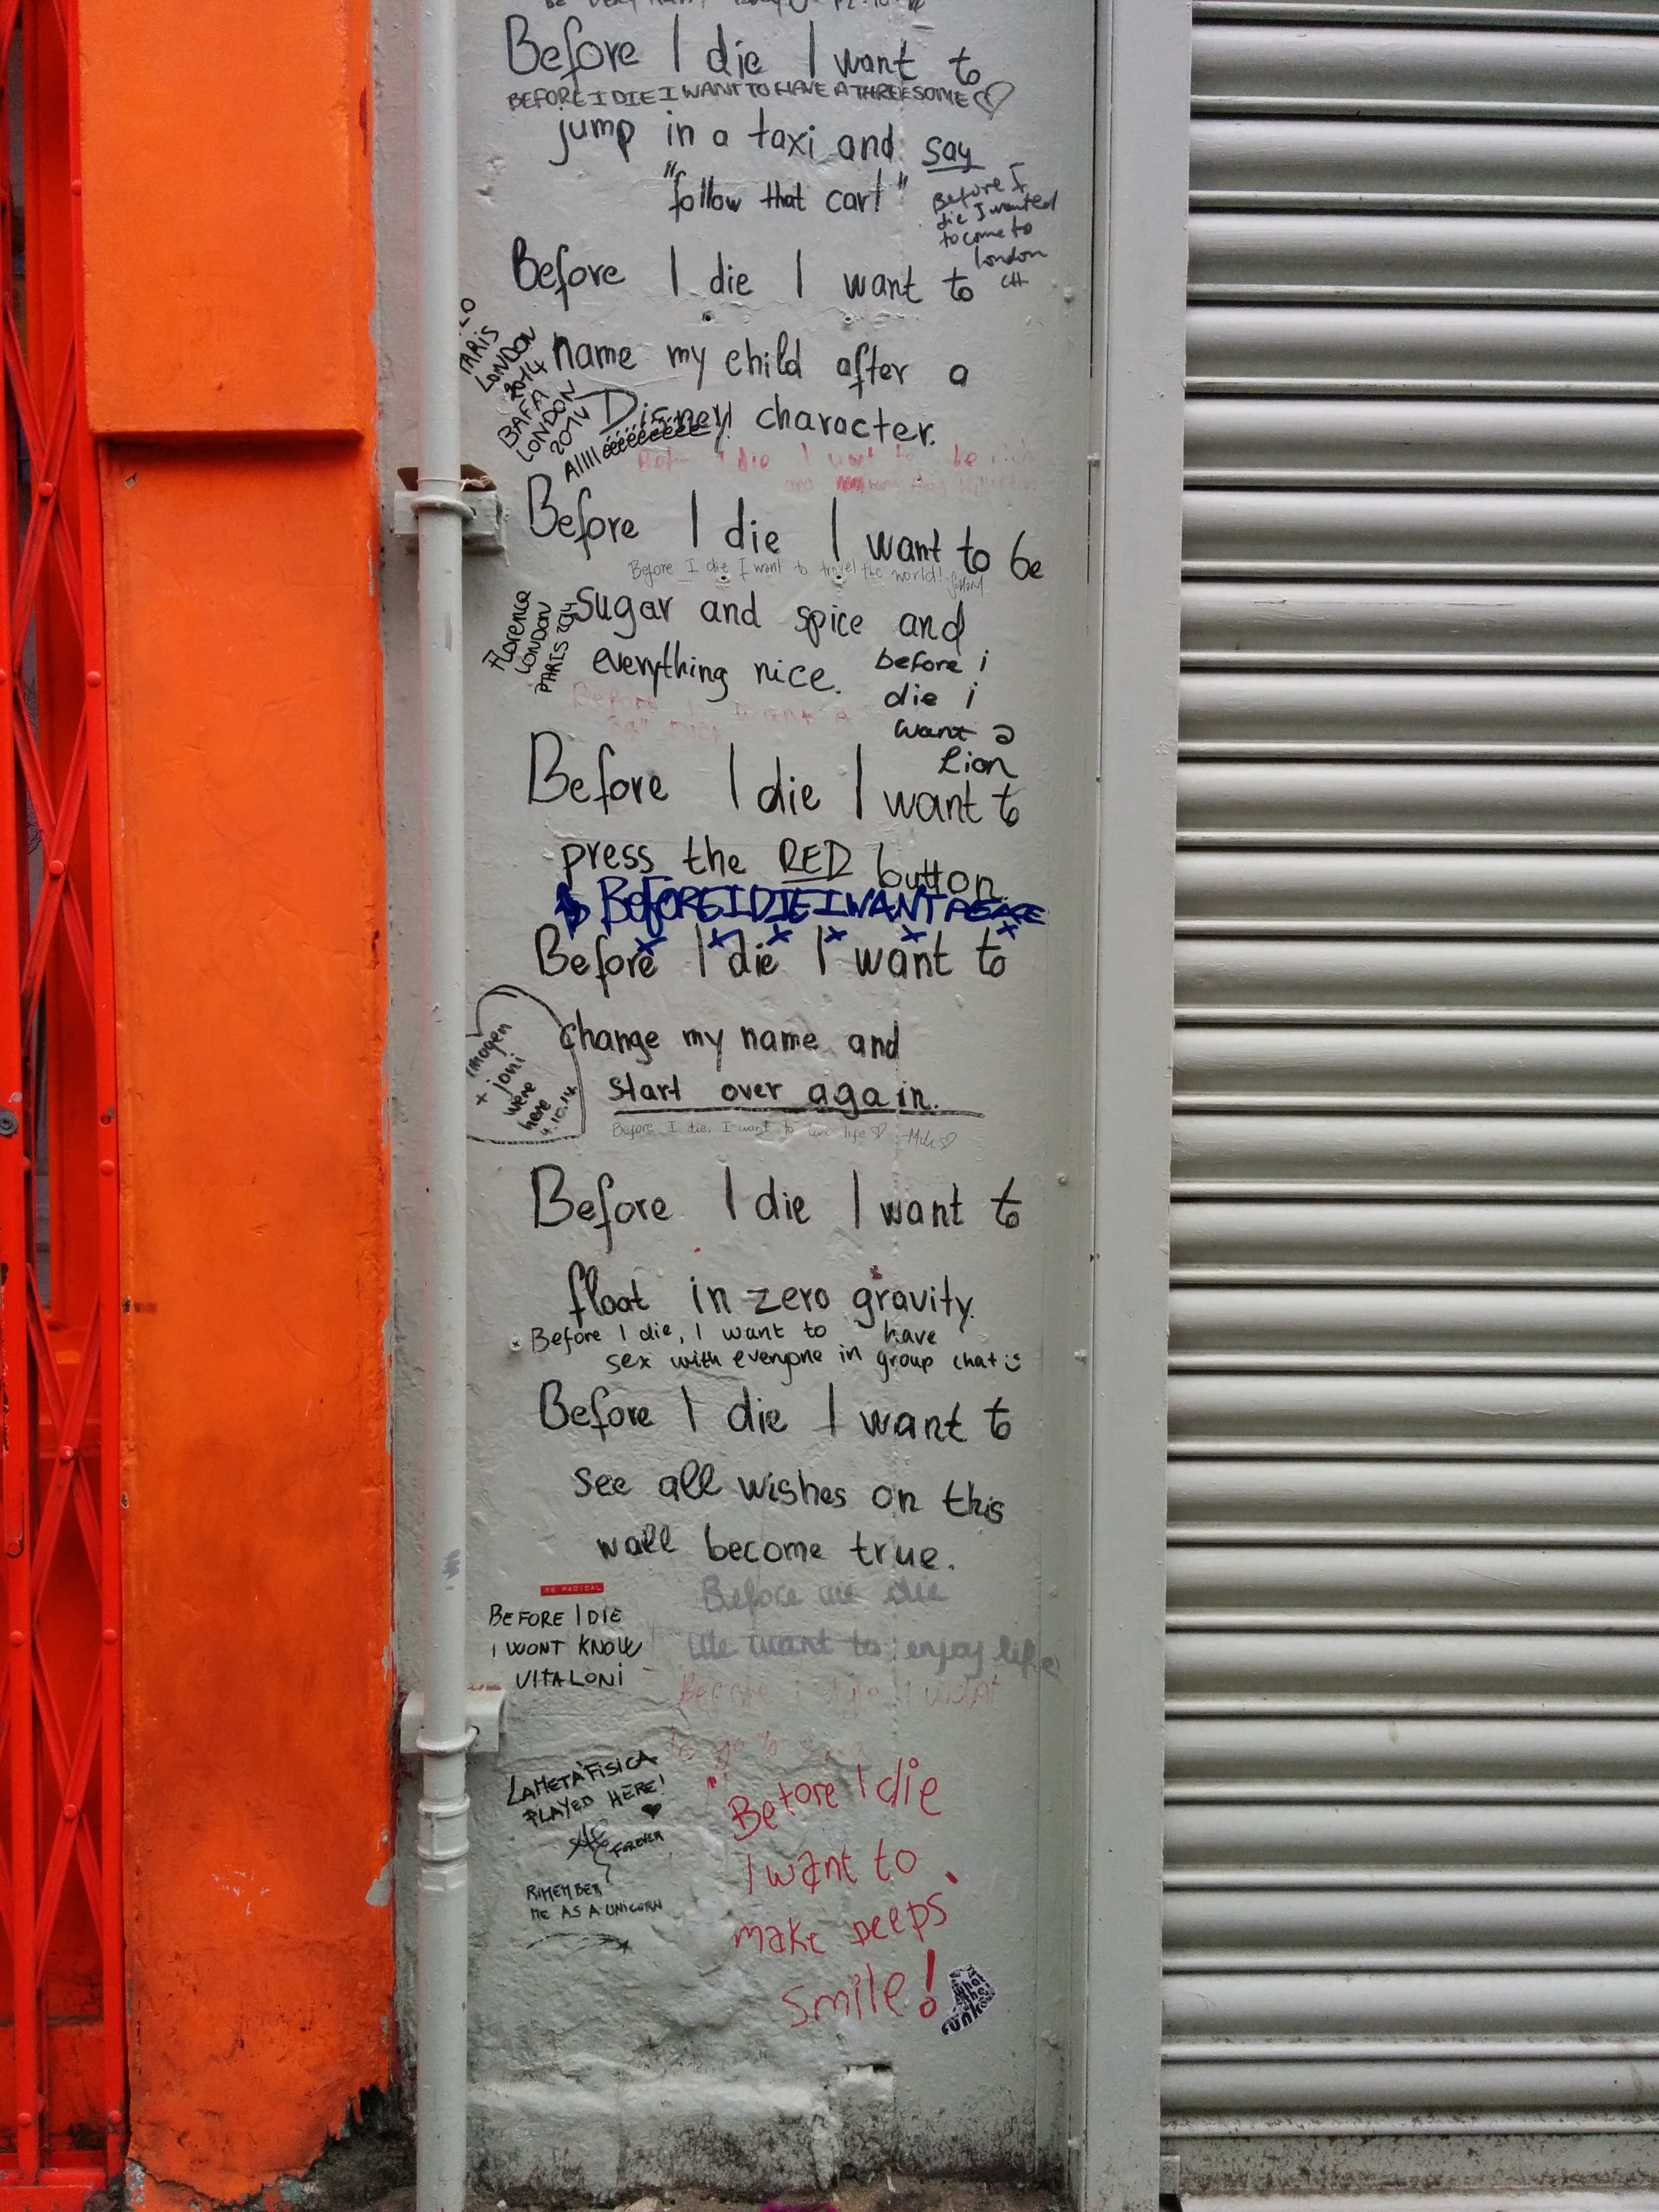 Before I die I want to
BEFORE I DIE I WANT TO HAVE A THREESOME
jump in a taxi and say
"follow that car!"
Before I
die I wanted
to come to
London
Before I die I want to
PARIS
LONDON
2014
BAFA
LONDON
2014
name my child after a
Disney! character.
Before I die I want to be
Before I die I want to travel the world!
sugar and spice and
everything nice.
Florence
LONDON
PARIS 2014
before i
die i
want a
Lion
Before I die I want to
press the RED button
BEFORE I DIE I WANT PEACE
Before I die I want to
change my name and
start over again.
imogen
+ joni
were
here
4.10.14
Before I die, I want to live life
Before I die I want to
float in zero gravity.
Before I die, I want to have
sex with everyone in group chat
Before I die I want to
see all wishes on this
wall become true.
BE RADICAL
Before we die
We want to enjoy life
BEFORE I DIE
I WONT KNOW
VITALONI
LAMETAFISICA
PLAYED HERE!
FOREVER
RIMEMBER
ME AS A UNICORN
Before I die
I want to
make peeps
smile!
what
the
funk